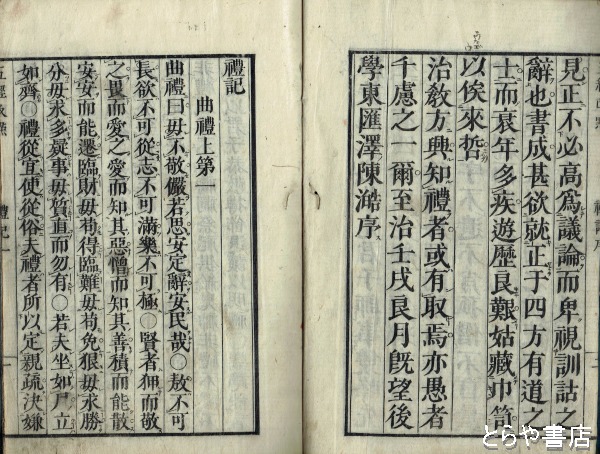 見正不必高爲議論而卑視訓詁之
辭也書成甚欲就正于四方有道之
士而衰年多疾遊歷良艱姑藏巾笥
以俟來哲
治敎方興知禮者或有取焉亦愚者
千慮之一爾至治壬戌良月旣望後
學東匯澤陳澔序
禮記
曲禮上第一
曲禮曰毋不敬儼若思安定辭安民哉○敖不可
長欲不可從志不可滿樂不可極○賢者狎而敬
之畏而愛之愛而知其惡憎而知其善積而能散
安安而能遷臨財毋苟得臨難毋苟免狠毋求勝
分毋求多疑事毋質直而勿有○若夫坐如尸立
如齊○禮從宜使從俗夫禮者所以定親疏決嫌
禮記一
とらや書店